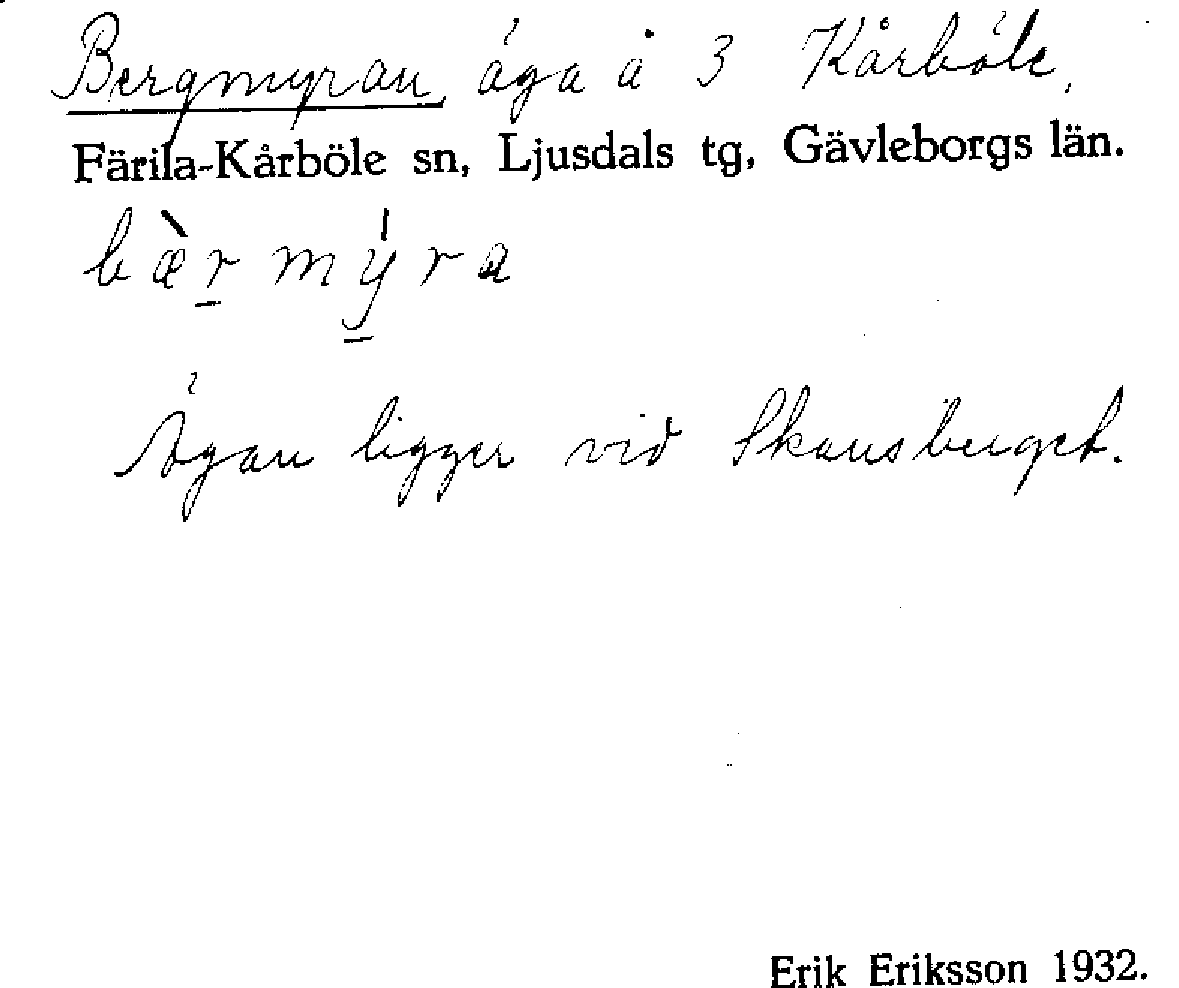 Bergmyran, äga å 3 Kårböle.
Färila-Kårböle sn, Ljusdals tg, Gävleborgs län.
bæ̀r̠mý̠ra
Ägan ligger vid Skansberget.
Erik Eriksson 1932.